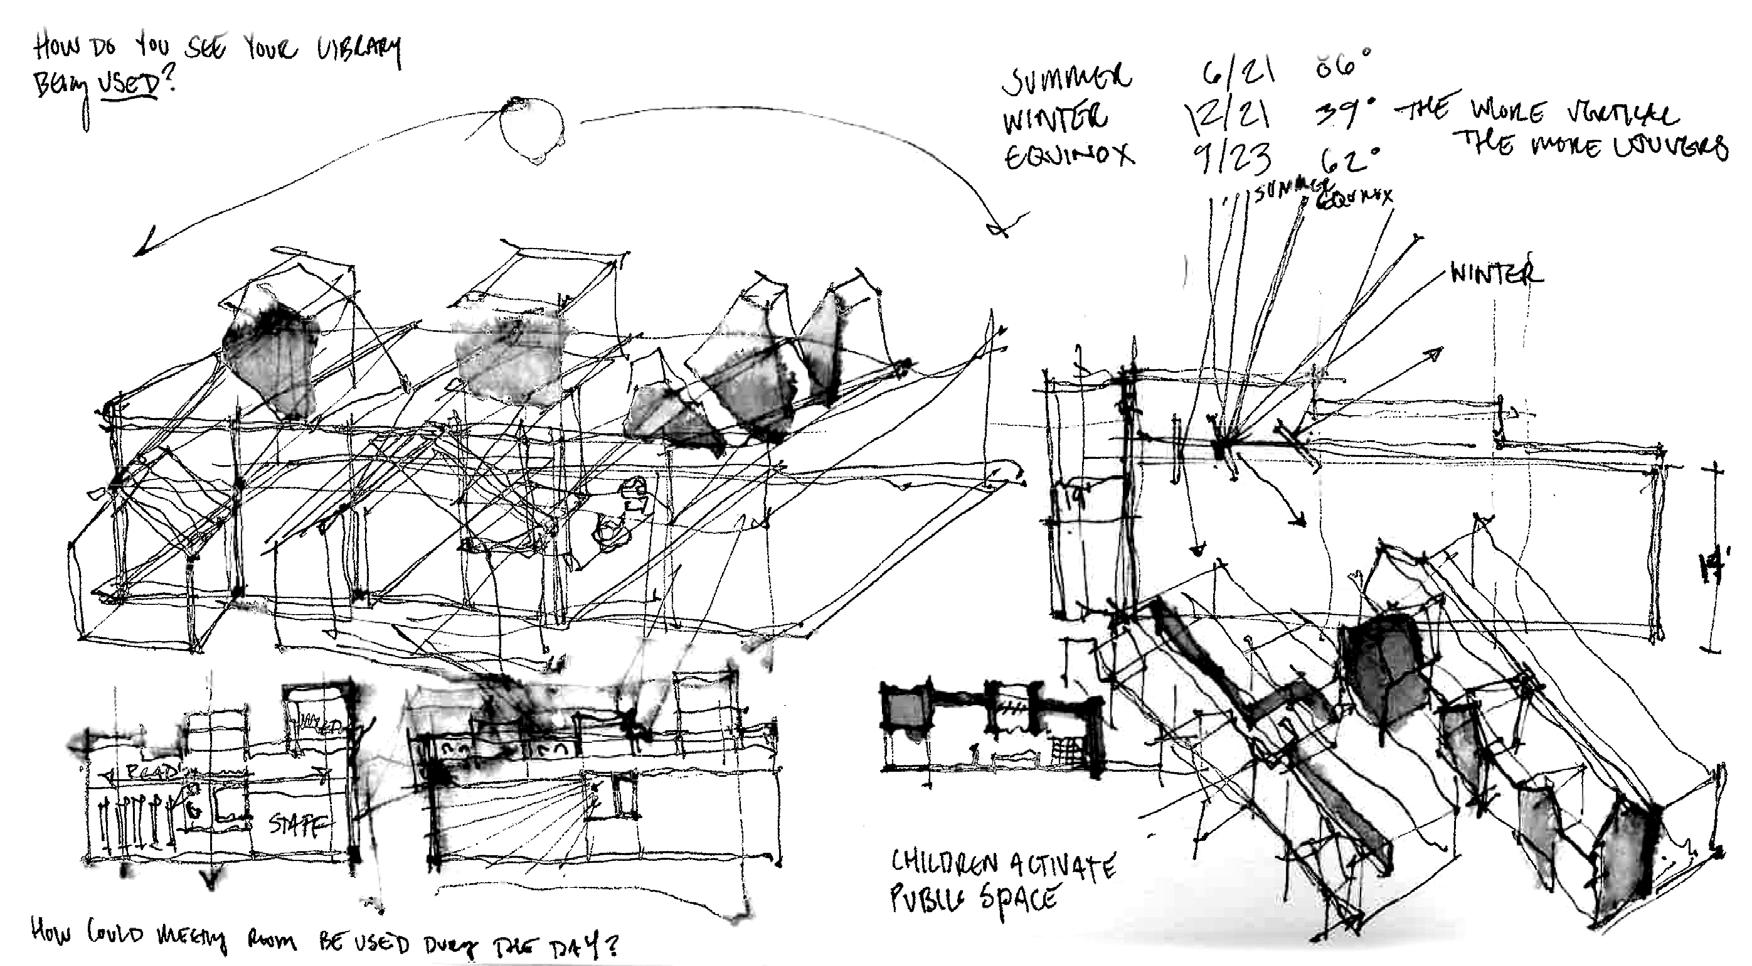 HOW DO YOU SEE YOUR LIBRARY
BEing USED?
SUMMER 6/21 86°
WINTER 12/21 39° THE MORE VERTICAL
THE MORE LOUVERS
EQUINOX 9/23 62°
SUMMER
EQUINOX
WINTER
14'
READ
STAFF
CHILDREN ACTIVATE
PUBLIC SPACE
HOW COULD MEETing ROOM BE USED DURing THE DAY?